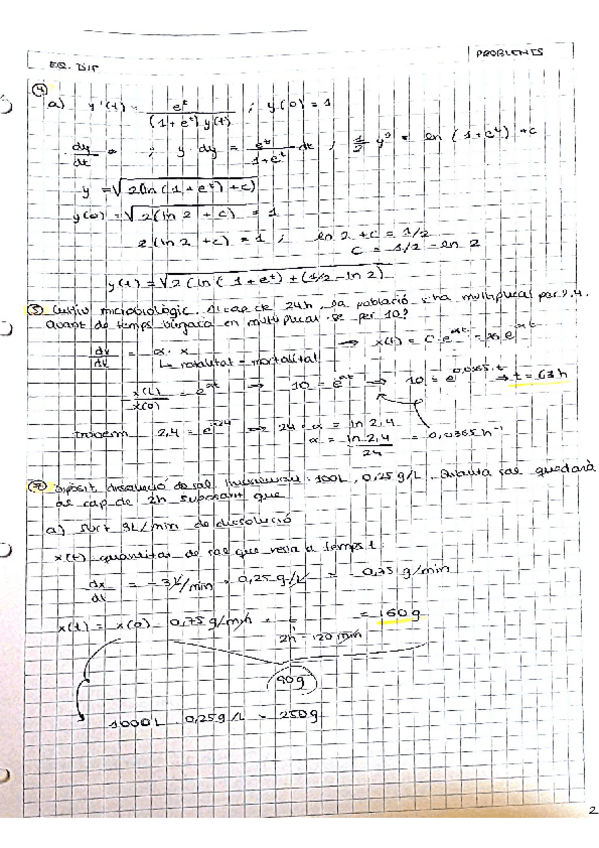 EQ. DIF
PROBLEMES
④
a) y'(t) = e^t / ((1+e^t) y(t)) ; y(0) = 1
dy/dt = ; y·dy = e^t/(1+e^t) dt ; 1/2 y² = ln(1+e^t)+c
y = √(2(ln(1+e^t)+c)
y(0) = √(2(ln 2 + c) = 1
2(ln 2 + c) = 1 ; ln 2 + c = 1/2
c = 1/2 - ln 2
y(t) = √(2(ln(1+e^t)+(1/2 - ln 2)
⑤ Cultiu microbiològic. Al cap de 24h, la població s'ha multiplicat per 2,4.
Quant de temps trigarà en multiplicar-se per 10?
dx/dt = α·x → x(t) = C·e^αt = x₀ e^αt
↳ natalitat - mortalitat
x(t)/x(0) = e^αt → 10 = e^αt → 10 = e^0,0365·t → t = 63 h
2,4 = e^α·24 → 24·α = ln 2,4
α = ln 2,4 / 24 = 0,0365 h⁻¹
⑦ Dipòsit dissolució de sal 1000L, 0,25 g/L. Quanta sal quedarà
al cap de 2h suposant que
a) Surt 3L/min de dissolució
x(t) quantitat de sal que resta a temps t
dx/dt = -3 L/min · 0,25 g/L = -0,75 g/min
x(t) = x(0) - 0,75 g/min · t = 160 g
2h · 120 min
90g
1000L · 0,25 g/L = 250 g
2